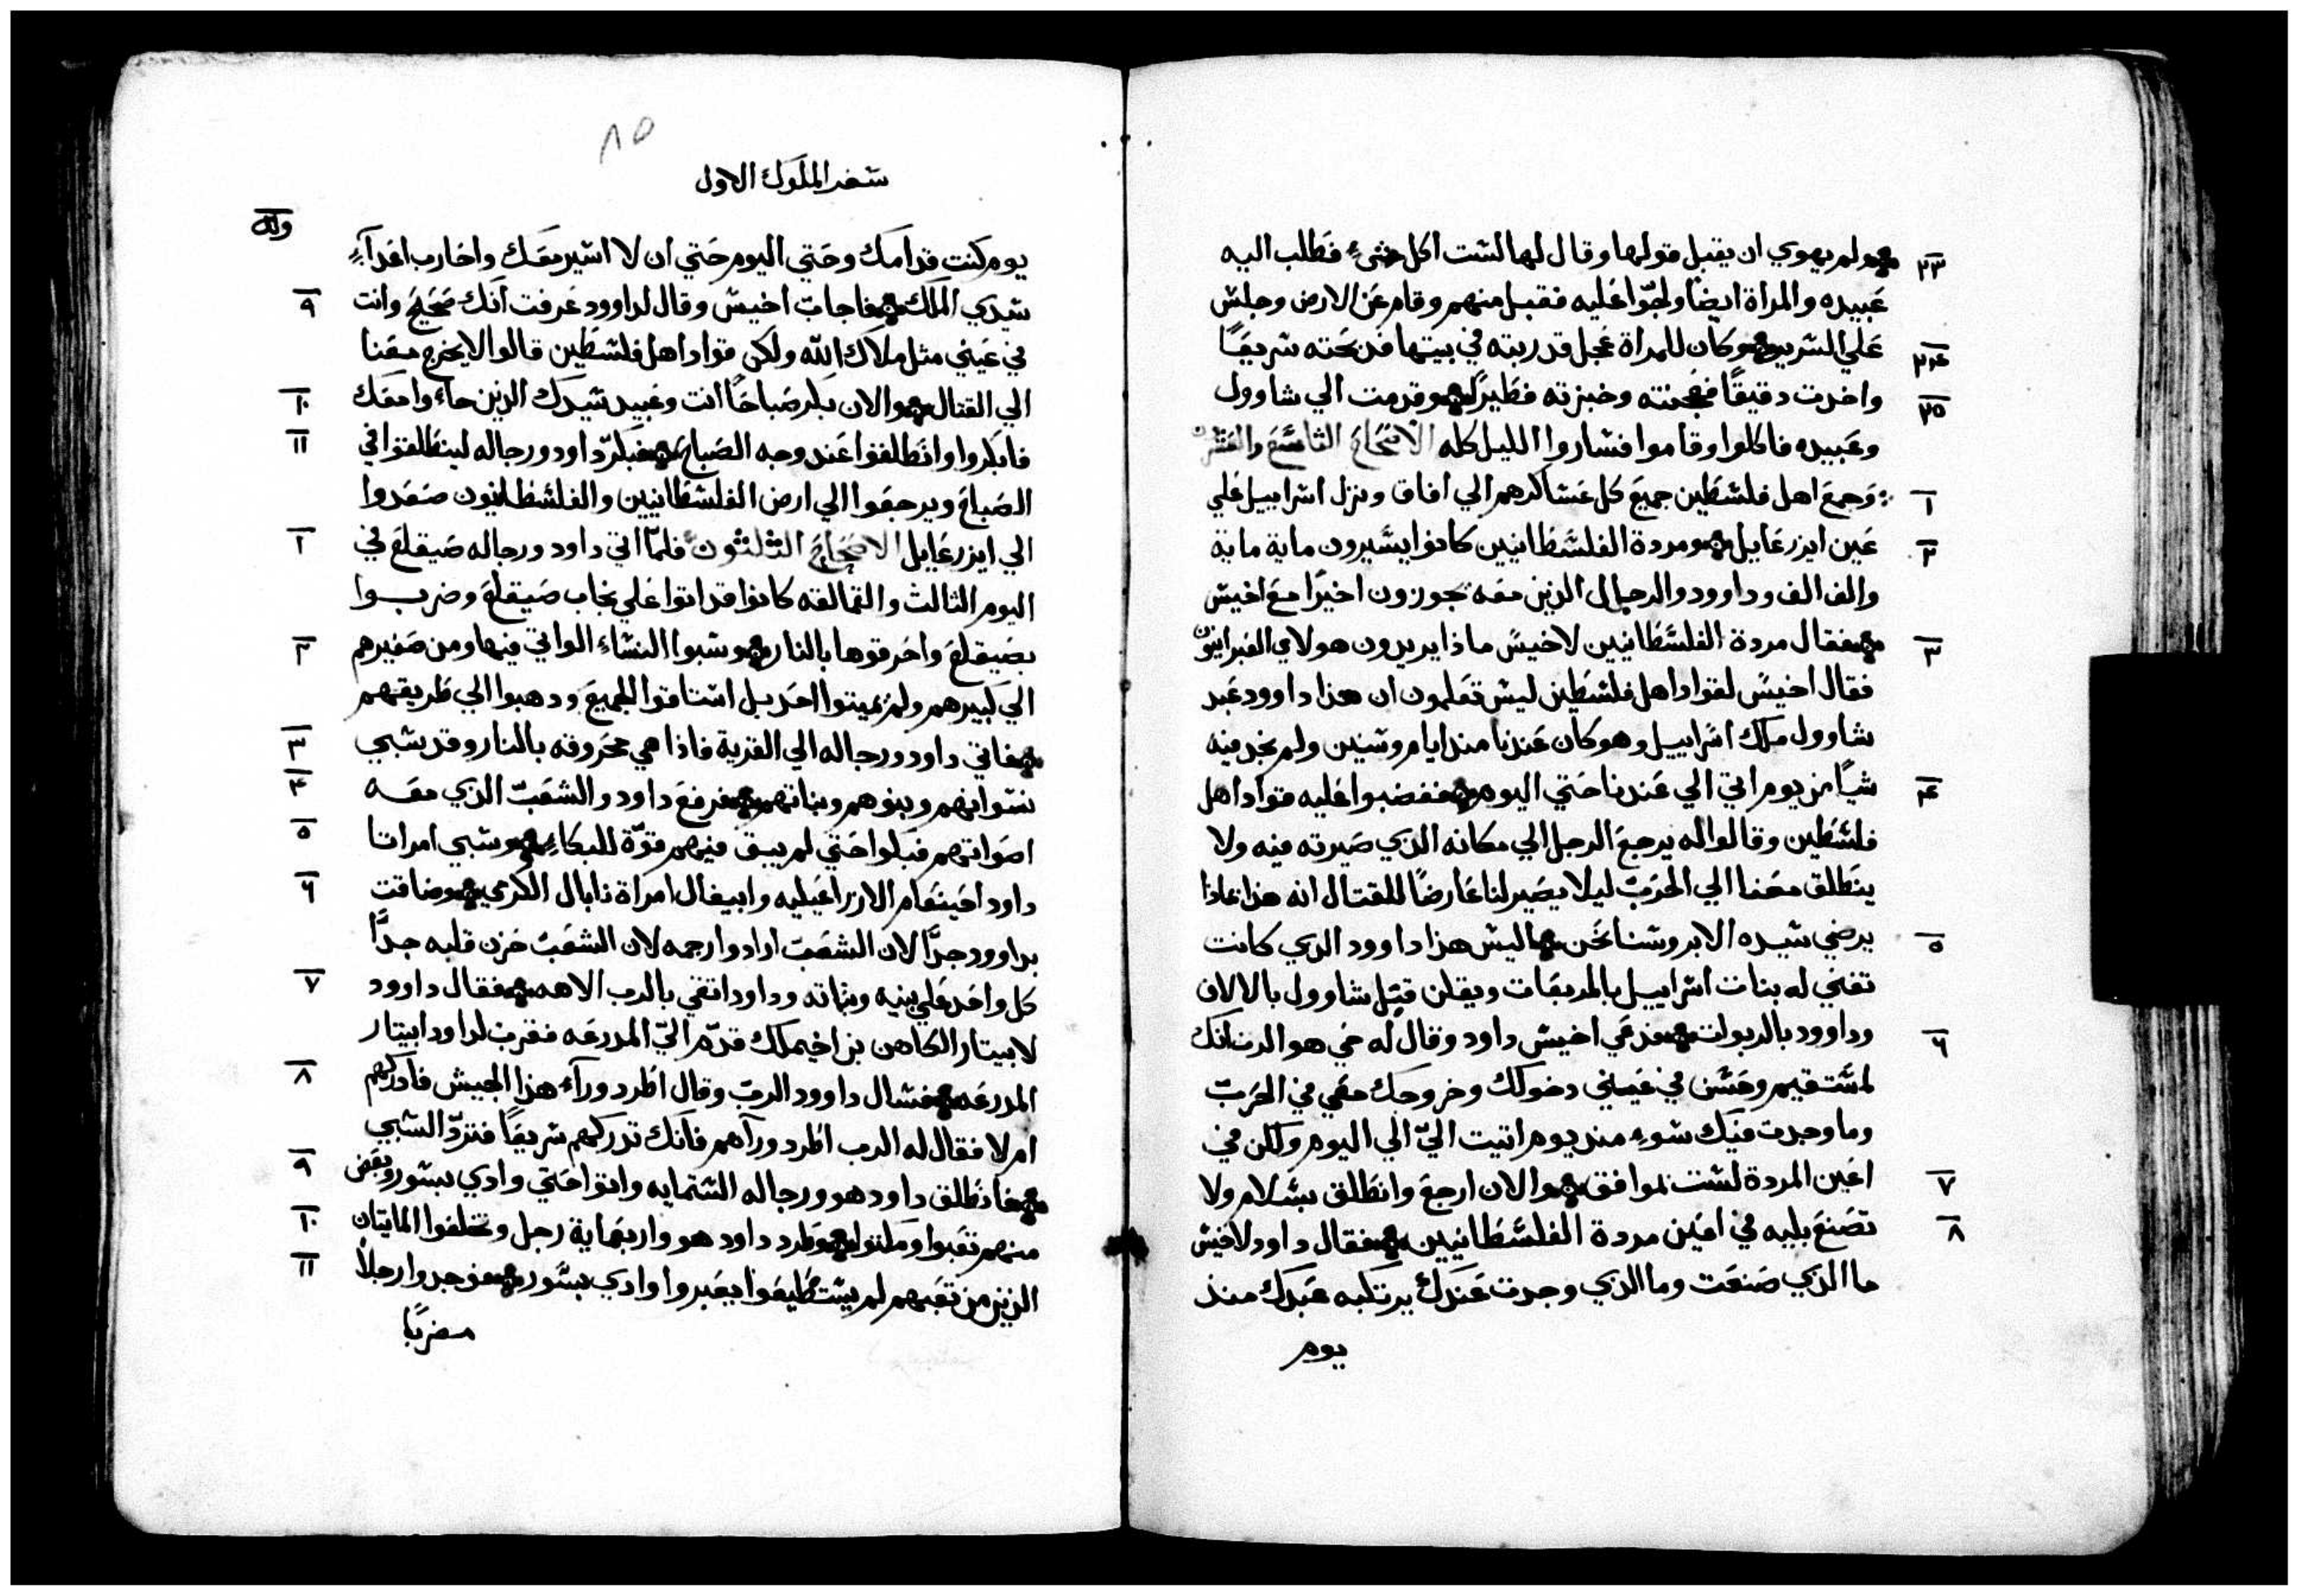 ٢٣ ولم يهوي ان يقبل قولها وقال لها لست اكل شيء فطلب اليه
عبيده والمراة ايضًا ولجّوا عليه فقبل منهم وقام عن الارض وجلس
٢٤ علي السرير وكان للمراة عجل قد ربته في بيتها فدبحته سريعًا
٢٥ واخدت دقيقًا فعجنته وخبزته فطير وقدمت الي شاوول
وعبيده فاكلوا وقاموا فساروا الليل كله الاصحاح التاسع والعشرون
١ وجمع اهل فلسطين جميع كل عساكرهم الي افاق ونزل اسراييل علي
٢ عين ايزرعايل ومردة الفلسطانيين كانوا يسيرون ماية ماية
والف الف وداوود والرجال الذين معه يجوزون اخيرًا مع اخيس
٣ فقال مردة الفلسطانيين لاخيس ماذا يريدون هولاي العبرانيون
فقال اخيس لقواد اهل فلسطين ليس تعلمون ان هذا داوود عبد
شاوول ملك اسراييل وهو كان عندنا مند ايام وسنين ولم نجد فيه
٤ شيًا من يوم اتي الي عندنا حتي اليوم فغضبوا عليه قواد اهل
فلسطين وقالوا له يرجع الرجل الي مكانه الذي صيرته فيه ولا
ينطلق معنا الي الحرب ليلا يصير لنا عارضًا للقتال انه هذا بماذا
٥ يرضي سيده الا بروسنا نحن اليس هذا داوود الذي كانت
تغني له بنات اسراييل بالمربعات ويقلن قتل شاوول بالالاف
٦ وداوود بالربوات فدعي اخيس داود وقال له حي هو الرب انك
لمستقيم وحسن في عيني دخولك وخروجك معي في الحرب
وما وجدت فيك سوء مند يوم اتيت اليّ الي اليوم ولكن في
٧ اعين المردة لست بموافق والان ارجع وانطلق بسلام ولا
٨ تصنع بليه في اعين مردة الفلسطانيين فقال داود لاخيس
ما الذي صنعت وما الذي وجدت عندك يرتكبه عبدك مند
يوم
٨٥
سفر الملوك الاول
يوم كنت قدامك وحتي اليوم حتي ان لا اسير معك واحارب اعدآء
٩ سيدي الملك فاجاب اخيس وقال لداوود عرفت انك صحيح وانت
في عيني مثل ملاك الله ولكن قواد اهل فلسطين قالوا لا يخرج معنا
١٠ الي القتال والان بكر صباحًا انت وعبيد سيدك الذين جاءوا معك
١١ فابكروا وانطلقوا عند وجه الصباح فبكر داود ورجاله لينطلقوا في
الصباح ويرجعوا الي ارض الفلسطانيين والفلسطانيون صعدوا
١ الي ايزرعايل الاصحاح الثلثون فلما اتي داود ورجاله صيقلغ في
اليوم الثالث والعمالقه كانوا قد اتوا علي نجاب صيقلغ وضربوا
٢ بصيقلغ واحرقوها بالنار وسبوا النساء الواتي فيها ومن صغيرهم
الي كبيرهم ولم يميتوا احد بل استاقوا الجميع ودهبوا الي طريقهم
٣ فاتي داود ورجاله الي القرية فاذا هي محروقه بالنار وقد سبي
٤ نسوانهم وبنوهم وبناتهم فرفع داود والشعب الذي معه
٥ اصواتهم فبكوا حتي لم يبق فيهم قوّة للبكاء وسبي امراتا
٦ داود احينعام الازراعيليه وابيغال امراة نابال الكرمي وضاقت
بداوود جدًّا لان الشعب ارادوا رجمه لان الشعب حزن قلبه جدًّا
٧ كل واحد علي بنيه وبناته وداود اتقي بالرب الاهه فقال داوود
لابيتار الكاهن بن اخيملك قدّم اليّ المدرعه فقرب لداود ابيتار
٨ المدرعه فسال داوود الرب وقال اطرد ورآء هذا الجيش فادركهم
ام لا فقال له الرب اطرد ورآهم فانك تدركهم سريعًا فتردّ السبي
٩ فانطلق داود هو ورجاله الستمايه واتوا حتي وادي بسور وبعض
١٠ منهم تعبوا وملوا وطرد داود هو واربعماية رجل وتخلفوا المايتان
١١ الذين من تعبهم لم يستطيعوا يعبروا وادي بسور فوجدوا رجلاً
مضربًا